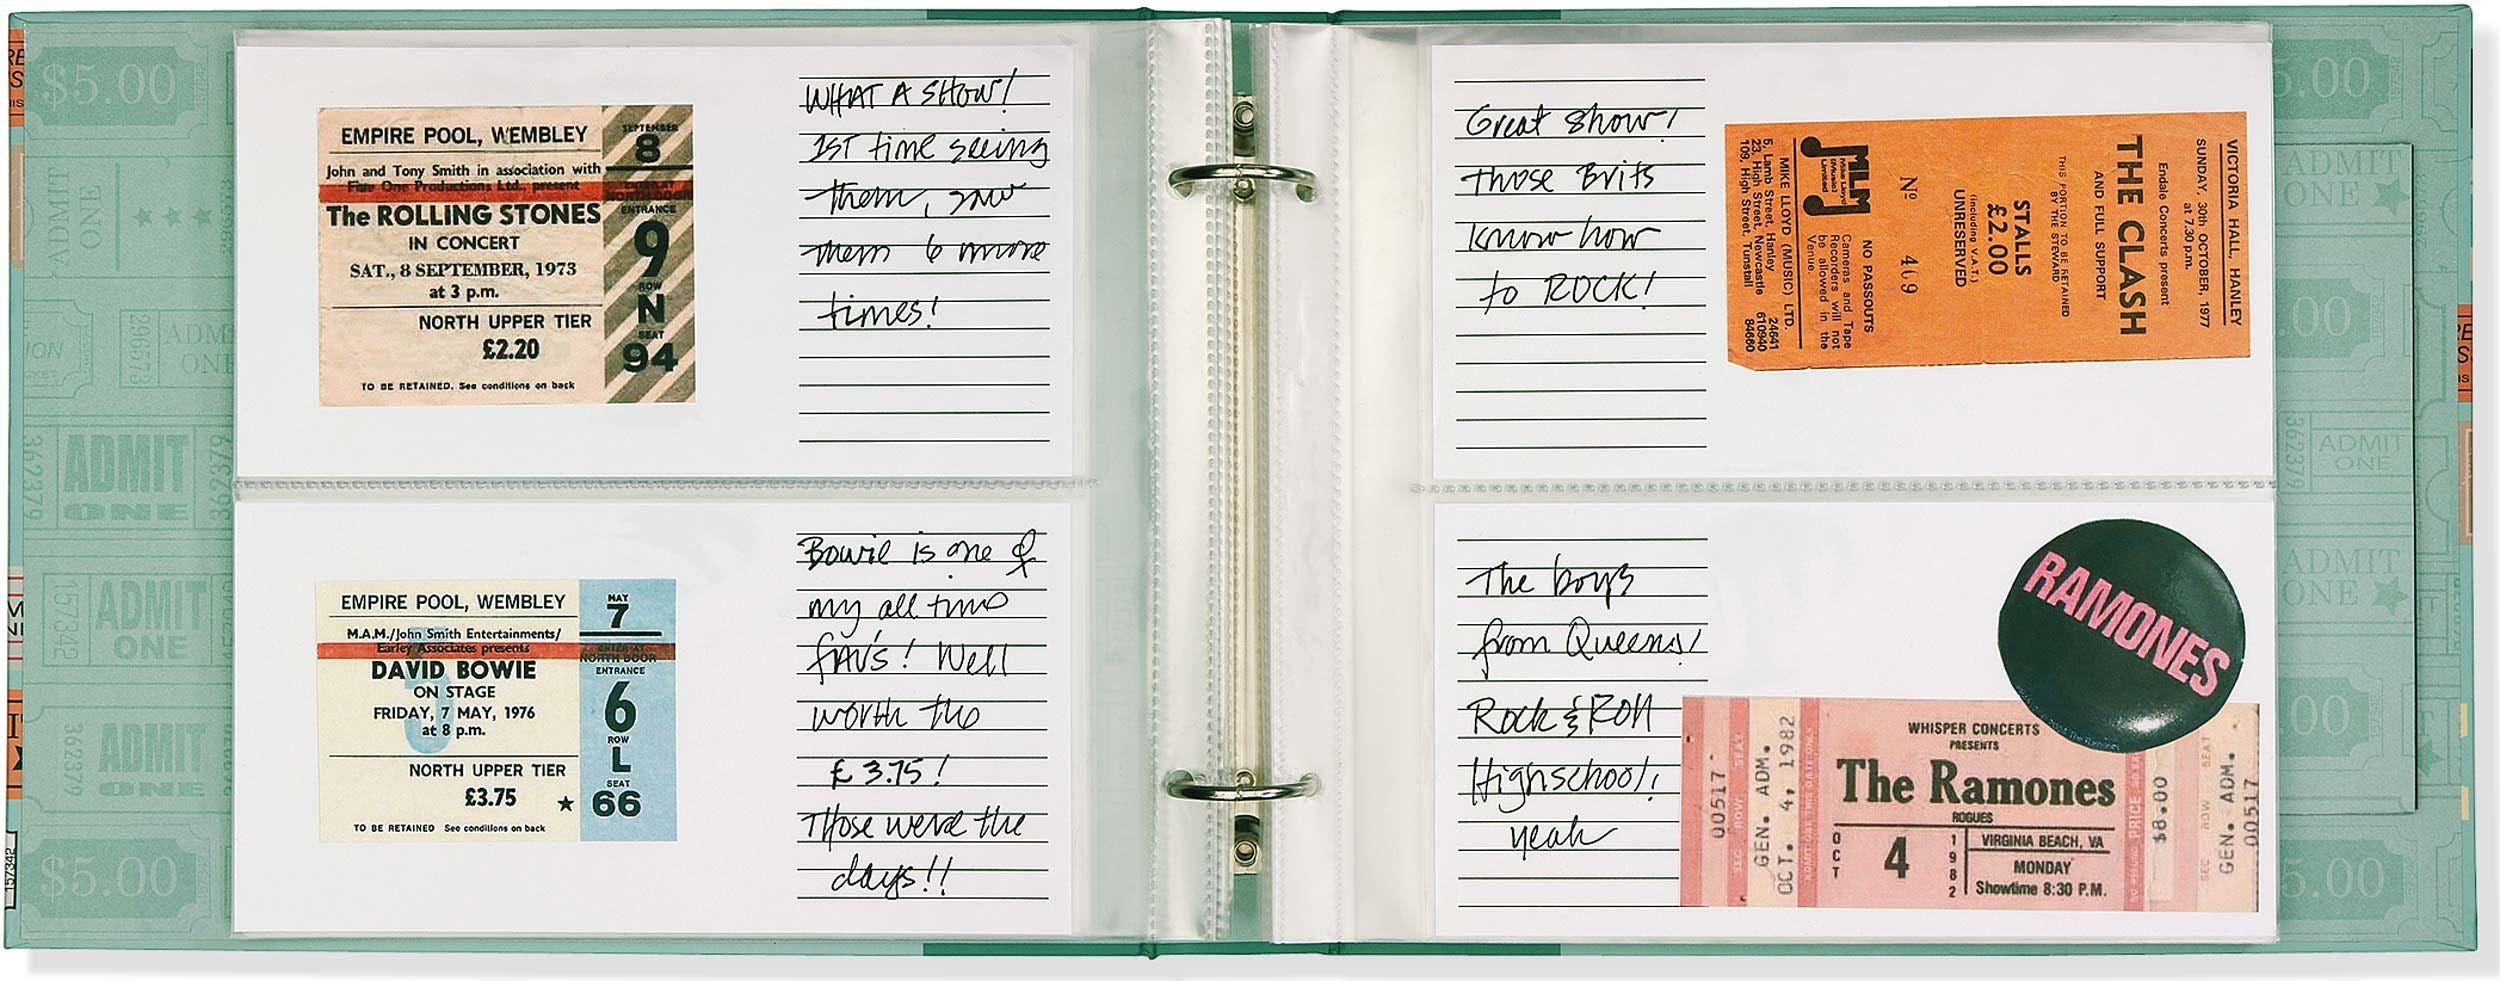 EMPIRE POOL, WEMBLEY
John and Tony Smith in association with
Five One Productions Ltd., present
The ROLLING STONES
IN CONCERT
SAT., 8 SEPTEMBER, 1973
at 3 p.m.
NORTH UPPER TIER
£2.20
TO BE RETAINED. See conditions on back
SEPTEMBER
8
NORTH DOOR
ENTRANCE
9
ROW
N
SEAT
94
WHAT A SHOW!
1ST time seeing
them, saw
them 6 more
times!
EMPIRE POOL, WEMBLEY
M.A.M./John Smith Entertainments/
Earley Associates presents
DAVID BOWIE
ON STAGE
FRIDAY, 7 MAY, 1976
at 8 p.m.
NORTH UPPER TIER
£3.75
TO BE RETAINED See conditions on back
MAY
7
ENTER AT
NORTH DOOR
ENTRANCE
6
ROW
L
SEAT
66
Bowie is one of
my all time
FAV'S! Well
worth the
£3.75!
Those were the
days!!
Great show!
Those Brits
know how
to ROCK!
VICTORIA HALL, HANLEY
SUNDAY, 30th OCTOBER, 1977
at 7.30 p.m.
Endale Concerts present
THE CLASH
AND FULL SUPPORT
THIS PORTION TO BE RETAINED
BY THE STEWARD
STALLS
£2.00
(including V.A.T.)
UNRESERVED
Nº 409
NO PASSOUTS
Cameras and Tape
Recorders will not
be allowed in the
Venue.
MLM
Mike Lloyd
(Music)
Limited
MIKE LLOYD (MUSIC) LTD.
5, Lamb Street, Hanley 24641
23, High Street, Newcastle 610940
109, High Street, Tunstall 84660
The boys
from Queens!
Rock & Roll
Highschool!
yeah
RAMONES
00517
SEC ROW SEAT
GEN. ADM.
OCT. 4, 1982
WHISPER CONCERTS
PRESENTS
The Ramones
ROGUES
OCT
4
1982
VIRGINIA BEACH, VA
MONDAY
Showtime 8:30 P.M.
$8.00
SEC ROW SEAT
GEN. ADM.
00517
$5.00
ADMIT
ONE
296573
ADMIT
ONE
362379
ADMIT
ONE
362379
157342
ADMIT
ONE
362379
ADMIT
ONE
$5.00
157342
5.00
ADMIT
ONE
.00
362379
ADMIT
ONE
ADMIT
ONE
.00
5.00